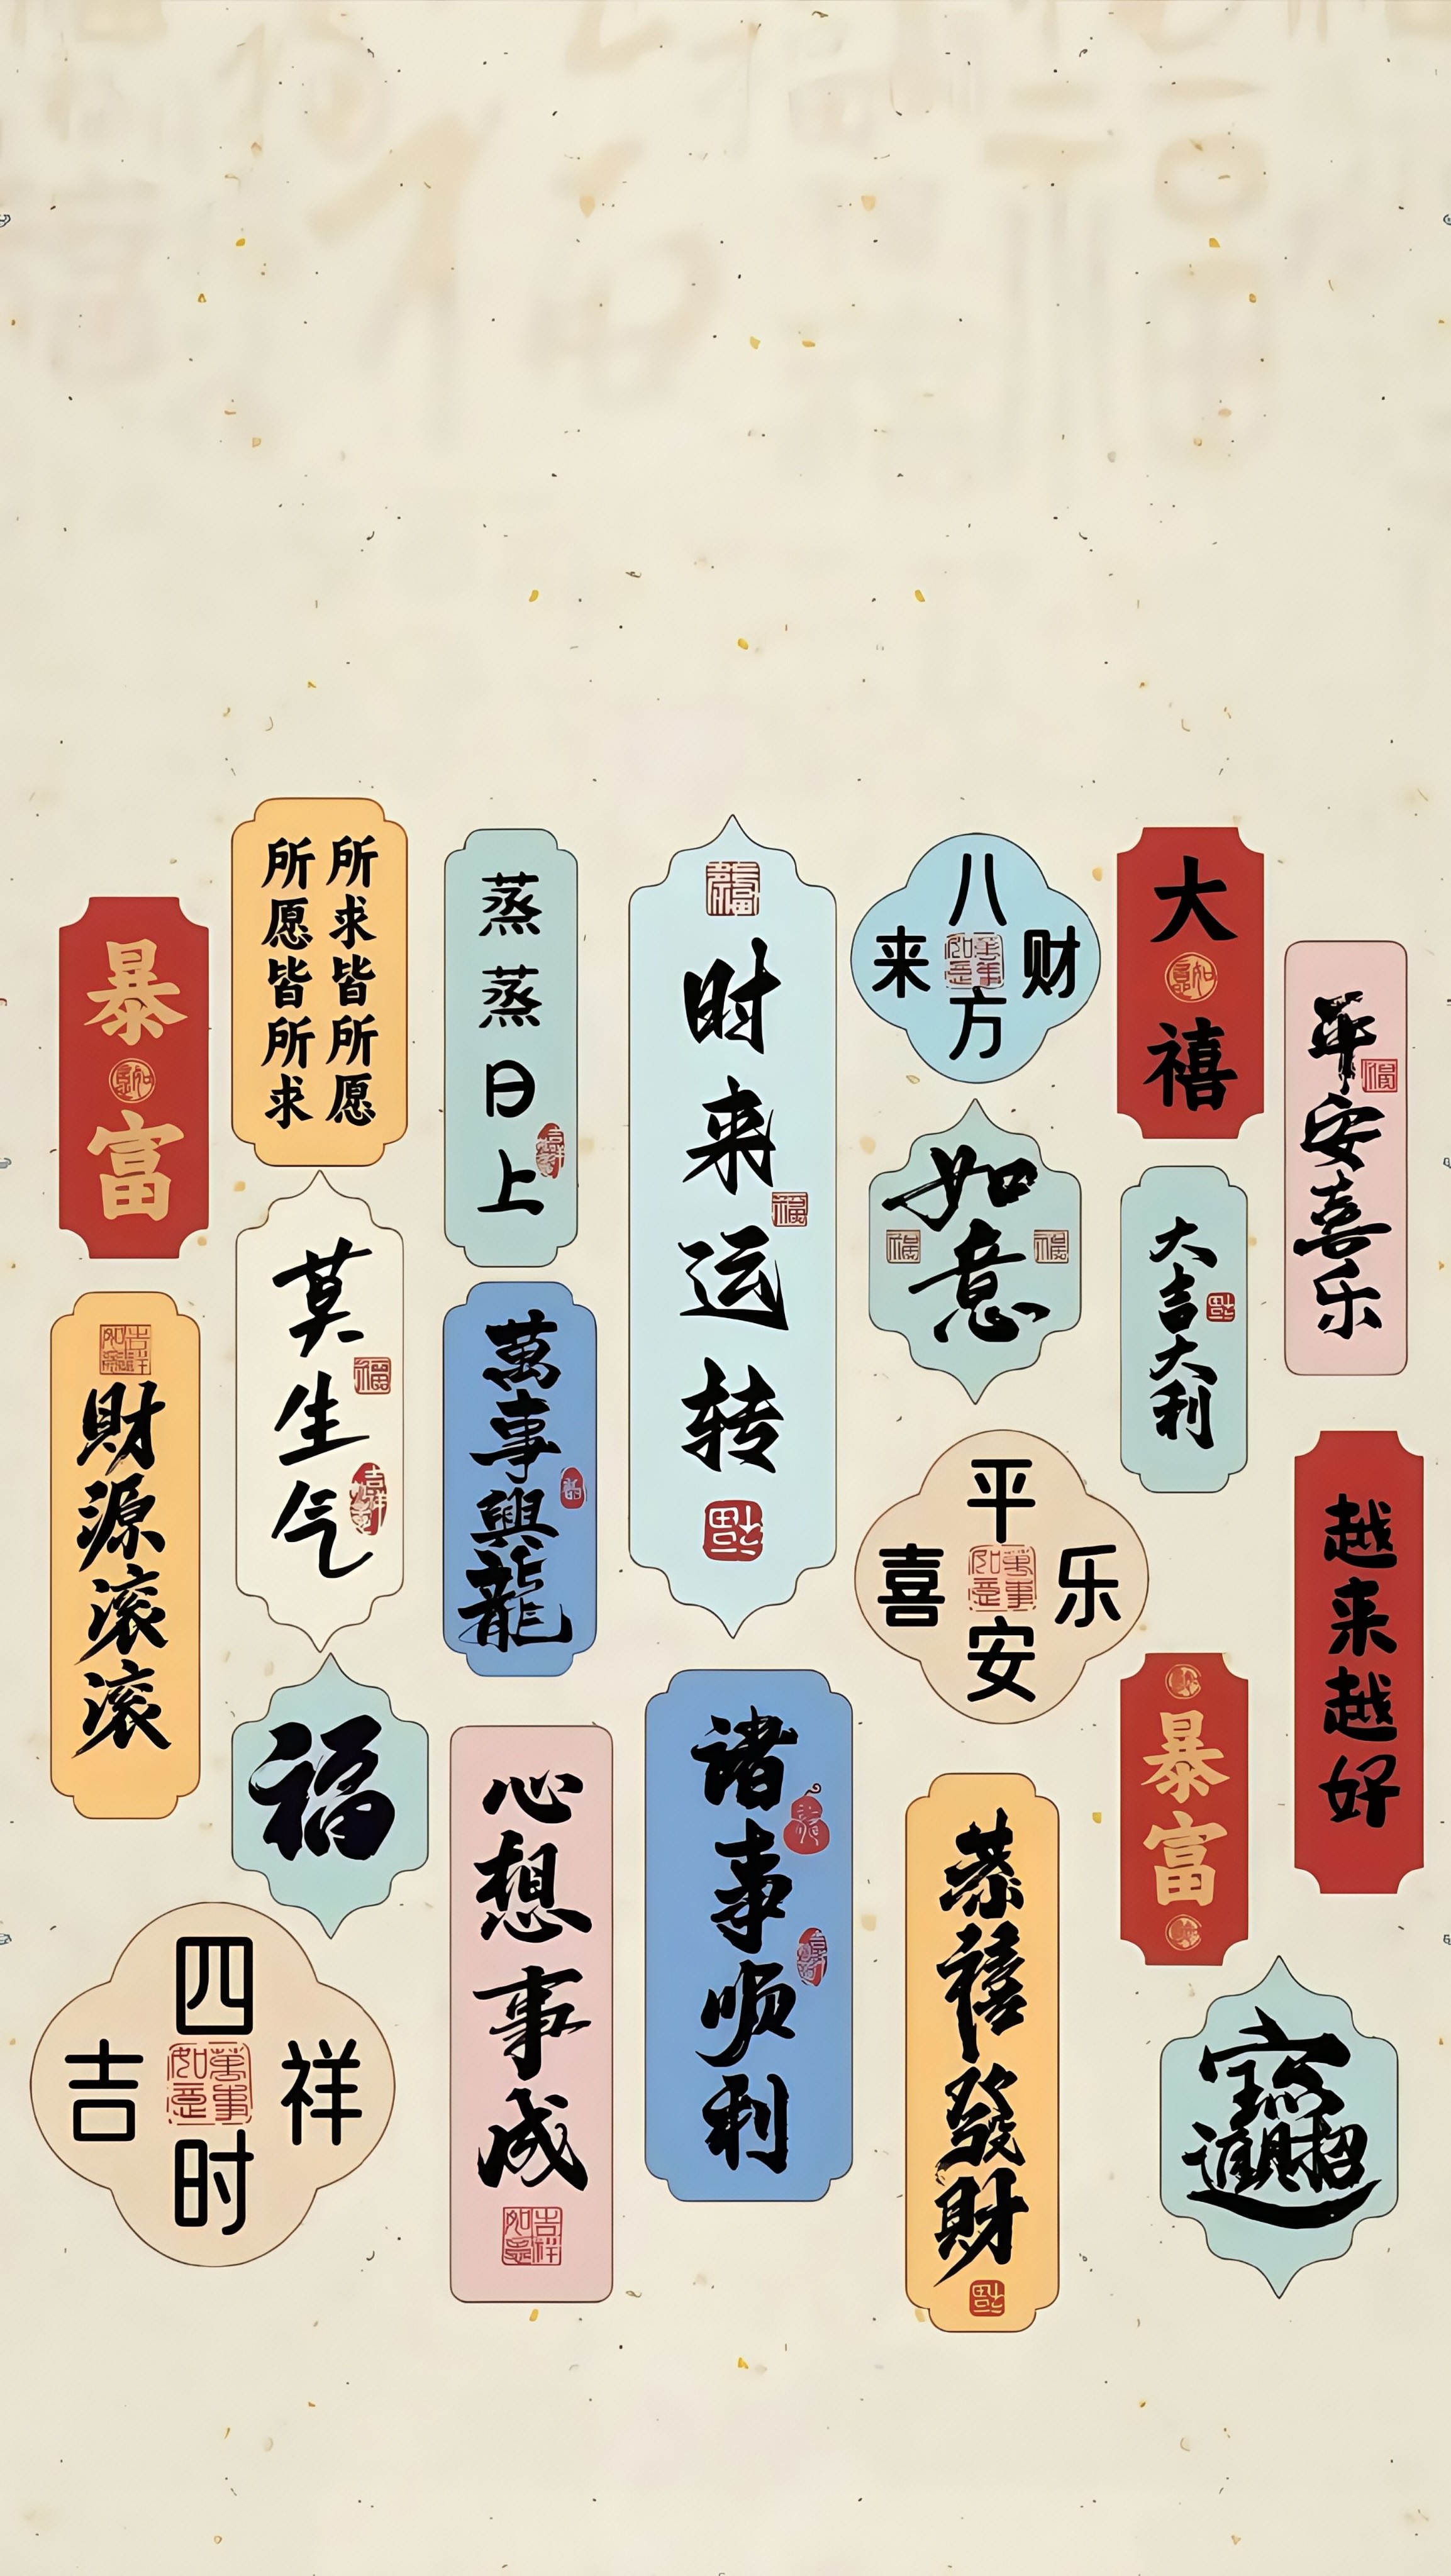 暴富
所求皆所愿
所愿皆所求
蒸蒸日上
时来运转
八方来财
大禧
平安喜乐
莫生气
如意
大吉大利
财源滚滚
萬事興龍
平安喜乐
越来越好
福
心想事成
诸事顺利
恭禧發財
暴富
四时吉祥
招财进宝